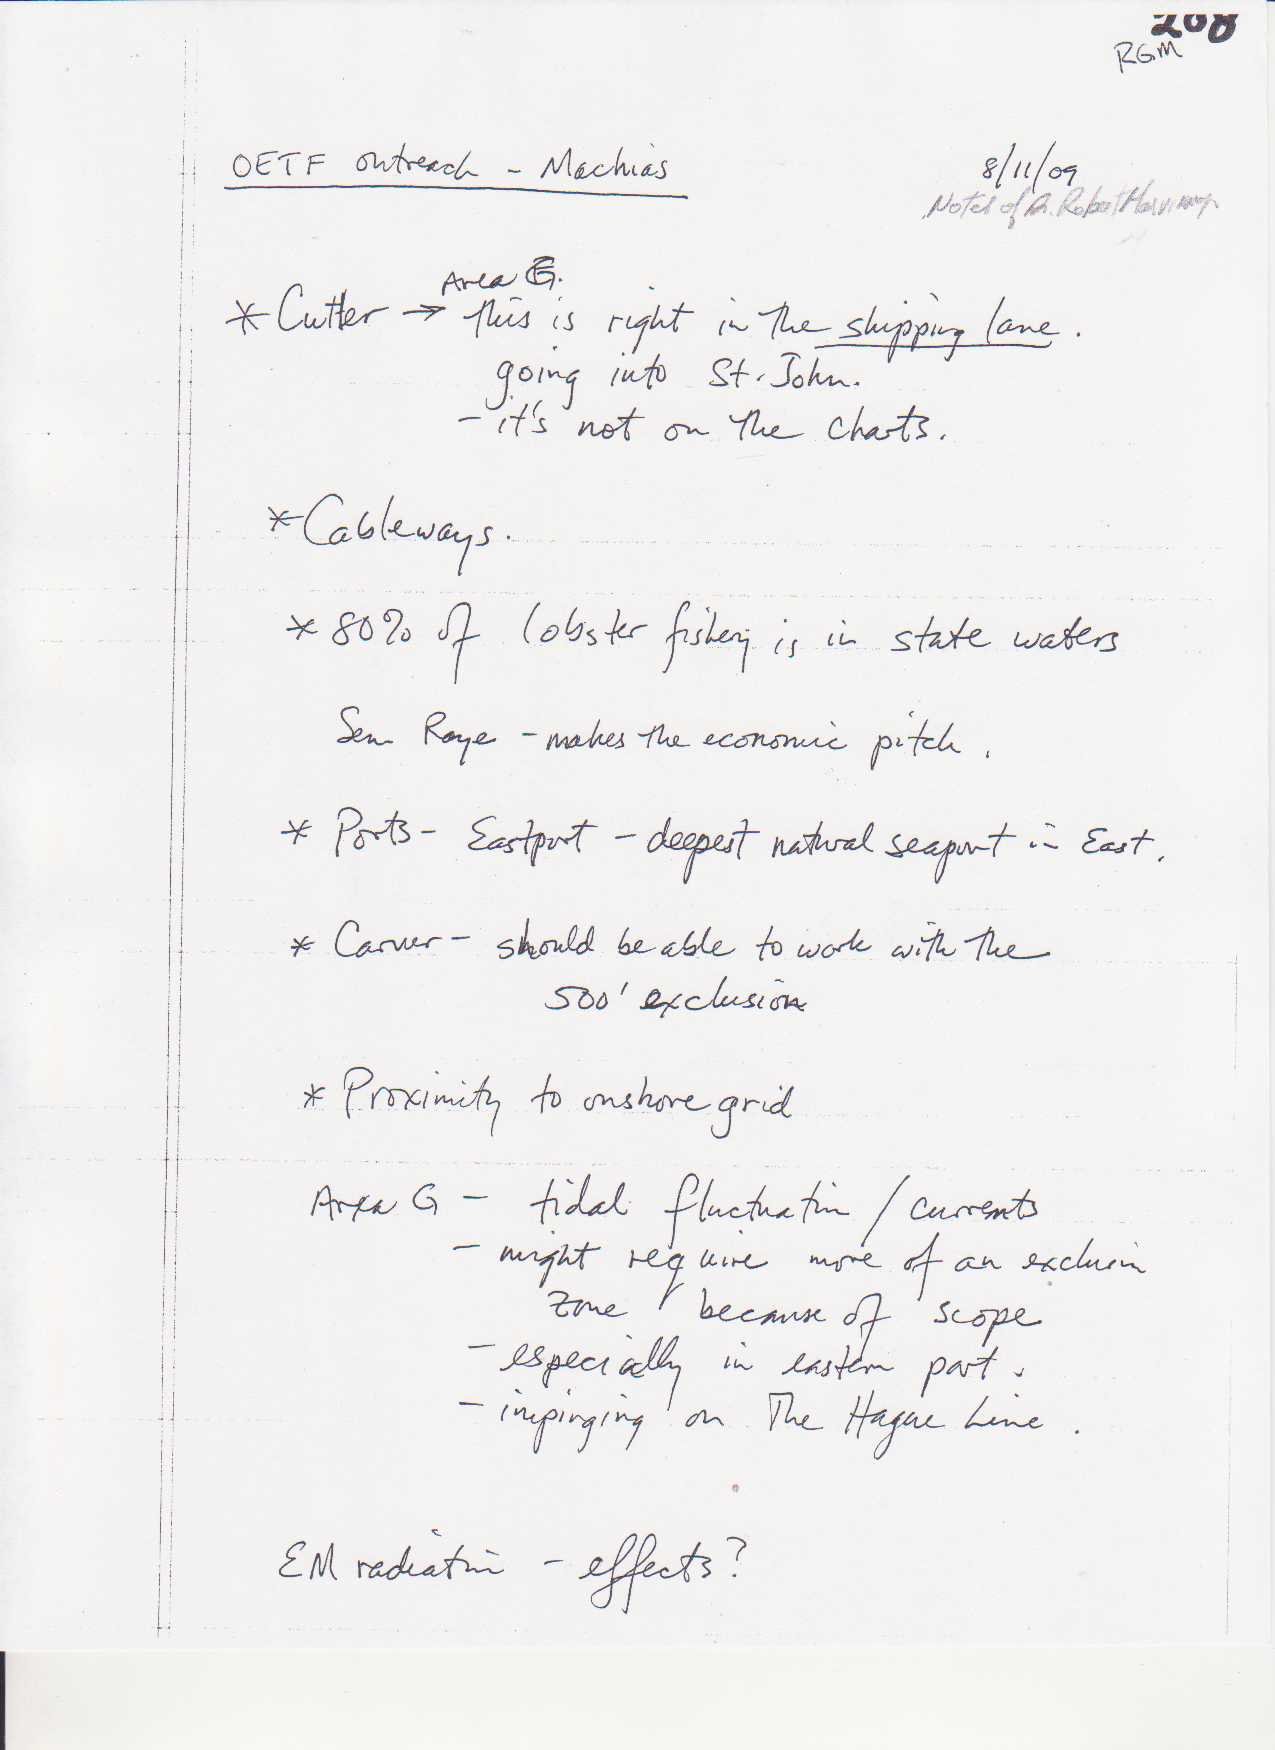 208
RGM
OETF outreach - Machias
8/11/09
Notes of Dr. Robert
Area G.
* Cutler → this is right in the shipping lane.
going into St. John.
- it's not on the charts.
* Cableways.
* 80% of lobster fishery is in state waters
Sen Raye - makes the economic pitch.
* Ports - Eastport - deepest natural seaport in East.
* Carver - should be able to work with the
500' exclusion
* Proximity to onshore grid
Area G - tidal fluctuation / currents
- might require more of an exclusion
zone because of scope
- especially in eastern part.
- impinging on The Hague Line.
EM radiation - effects?